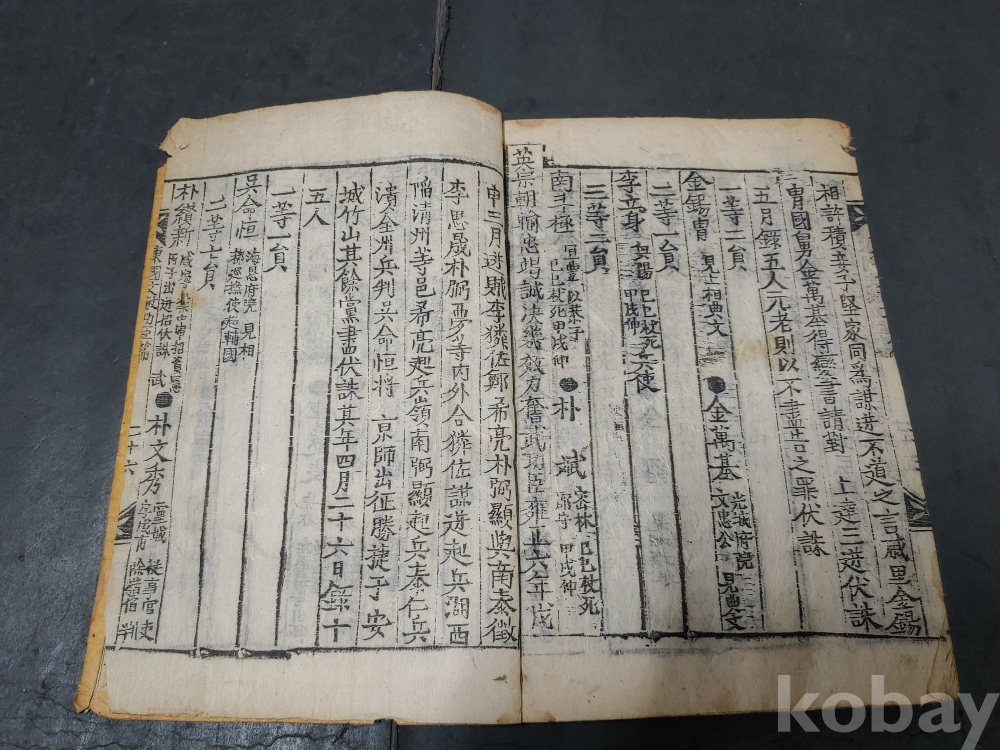 相許積妾子堅家同爲謀逆不道之言戚里金錫
冑國舅金萬基得變書請對 上達三逆伏誅
五月錄五人元老則以不盡告之罪伏誅
一等二員
金錫冑 見上相典文 ●金萬基 光城府院 文忠公 見典文
二等一員
李立身 己巳杖死 甲戌伸 兵使
三等二員
南斗極 己巳杖死甲戌伸 ●朴 斌 密林 己巳杖死 甲戌伸
英宗朝輸忠竭誠決幾效力奮武功臣雍正六年戊
申三月逆賊李獜佐鄭希亮朴弼顯與南泰徵
李思晟朴弼夢等內外合獜佐謀逆起兵湖西
陷清州等邑希亮起兵嶺南弼顯起兵泰仁兵
潰全州兵判吳命恒將 京師出征勝捷于安
城竹山其餘黨盡伏誅其年四月二十六日錄十
五人
一等一員
吳命恒 海恩府院 見相
二等七員
朴纘新 伏誅 武 ●朴文秀 靈城 從事官 判
二十六
kobay